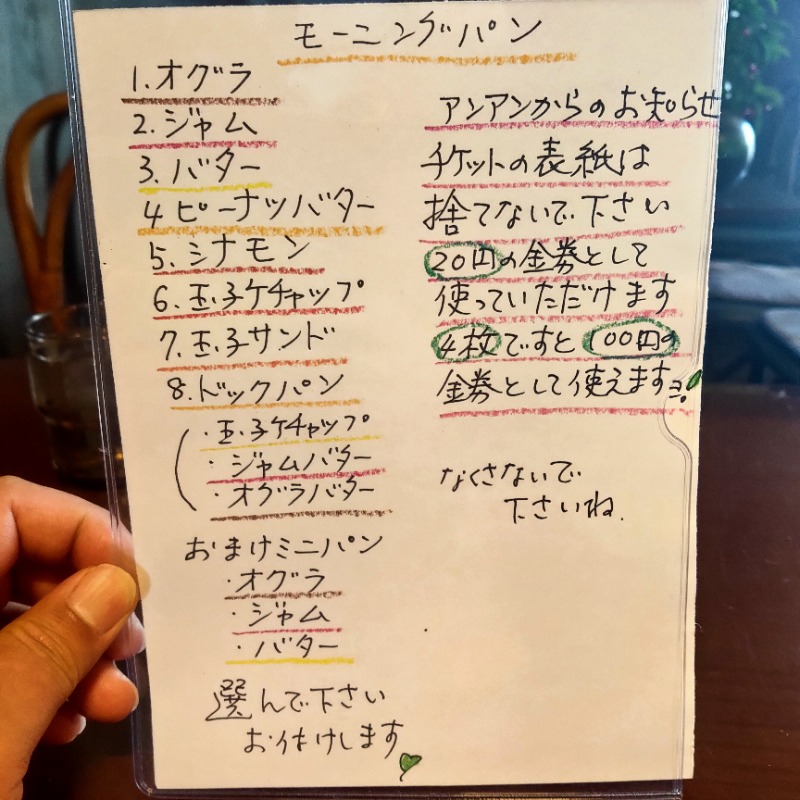 モーニングパン
1.オグラ
2.ジャム
3.バター
4ピーナツバター
5.シナモン
6.玉子ケチャップ
7.玉子サンド
8.ドックパン
・玉子ケチャップ
・ジャムバター
・オグラバター
おまけミニパン
・オグラ
・ジャム
・バター
選んで下さい
お付けします
アンアンからのお知らせ
チケットの表紙は
捨てないで下さい
20円の金券として
使っていただけます
4枚ですと100円の
金券として使えます
なくさないで
下さいね.